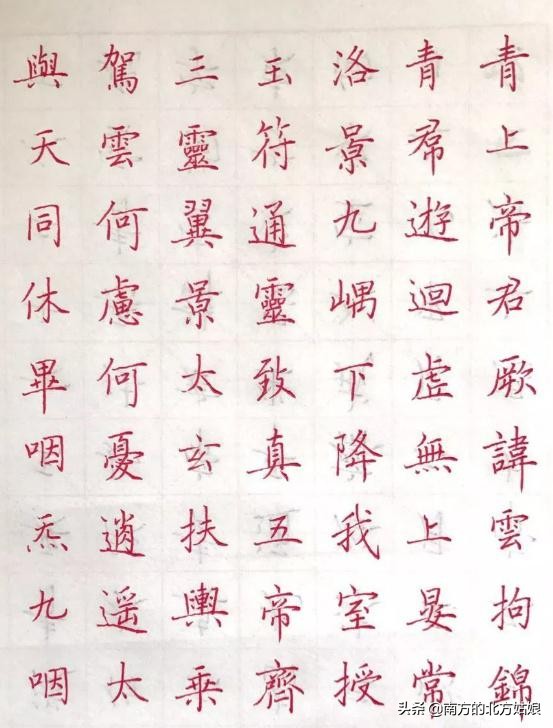 青上帝君厥諱雲拘錦
青帬遊迴虛無上晏常
洛景九嵎下降我室授
玉符通靈致真五帝齊
三靈翼景太玄扶輿乘
駕雲何慮何憂逍遥太
與天同休畢咽炁九咽
头条 @南方的北方姑娘